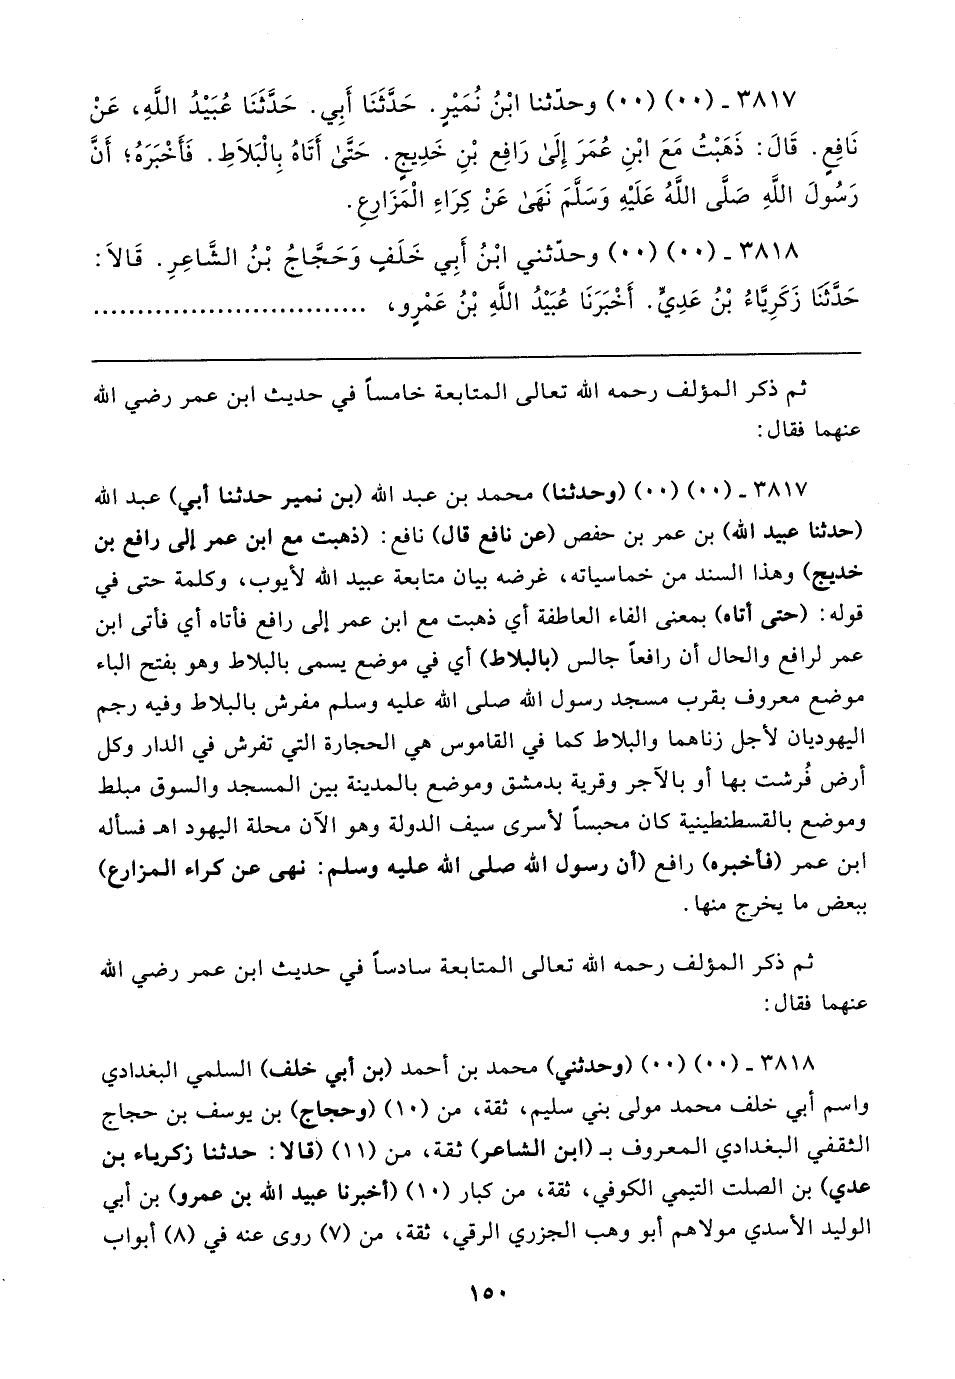 ٣٨١٧ ـ (٠٠) (٠٠) وحدّثنا ابْنُ نُمَيْرٍ. حَدَّثَنَا أَبِي. حَدَّثَنَا عُبَيْدُ اللَّهِ، عَنْ
نَافِعٍ. قَالَ: ذَهَبْتُ مَعَ ابْنِ عُمَرَ إِلَىٰ رَافِعِ بْنِ خَدِيجٍ. حَتَّىٰ أَتَاهُ بِالْبَلاَطِ. فَأَخْبَرَهُ؛ أَنَّ
رَسُولَ اللَّهِ صَلَّى اللَّهُ عَلَيْهِ وَسَلَّمَ نَهَىٰ عَنْ كِرَاءِ الْمَزَارِعِ.
٣٨١٨ ـ (٠٠) (٠٠) وحدّثني ابْنُ أَبِي خَلَفٍ وَحَجَّاجُ بْنُ الشَّاعِرِ. قَالاَ:
حَدَّثَنَا زَكَرِيَّاءُ بْنُ عَدِيٍّ. أَخْبَرَنَا عُبَيْدُ اللَّهِ بْنُ عَمْرٍو، ...............................
ثم ذكر المؤلف رحمه الله تعالى المتابعة خامساً في حديث ابن عمر رضي الله
عنهما فقال:
٣٨١٧ ـ (٠٠) (٠٠) (وحدثنا) محمد بن عبد الله (بن نمير حدثنا أبي) عبد الله
(حدثنا عبيد الله) بن عمر بن حفص (عن نافع قال) نافع: (ذهبت مع ابن عمر إلى رافع بن
خديج) وهذا السند من خماسياته، غرضه بيان متابعة عبيد الله لأيوب، وكلمة حتى في
قوله: (حتى أتاه) بمعنى الفاء العاطفة أي ذهبت مع ابن عمر إلى رافع فأتاه أي فأتى ابن
عمر لرافع والحال أن رافعاً جالس (بالبلاط) أي في موضع يسمى بالبلاط وهو بفتح الباء
موضع معروف بقرب مسجد رسول الله صلى الله عليه وسلم مفرش بالبلاط وفيه رجم
اليهوديان لأجل زناهما والبلاط كما في القاموس هي الحجارة التي تفرش في الدار وكل
أرض فُرشت بها أو بالآجر وقرية بدمشق وموضع بالمدينة بين المسجد والسوق مبلط
وموضع بالقسطنطينية كان محبساً لأسرى سيف الدولة وهو الآن محلة اليهود اهـ فسأله
ابن عمر (فأخبره) رافع (أن رسول الله صلى الله عليه وسلم: نهى عن كراء المزارع)
ببعض ما يخرج منها.
ثم ذكر المؤلف رحمه الله تعالى المتابعة سادساً في حديث ابن عمر رضي الله
عنهما فقال:
٣٨١٨ ـ (٠٠) (٠٠) (وحدثني) محمد بن أحمد (بن أبي خلف) السلمي البغدادي
واسم أبي خلف محمد مولى بني سليم، ثقة، من (١٠) (وحجاج) بن يوسف بن حجاج
الثقفي البغدادي المعروف بـ (ابن الشاعر) ثقة، من (١١) (قالا: حدثنا زكرياء بن
عدي) بن الصلت التيمي الكوفي، ثقة، من كبار (١٠) (أخبرنا عبيد الله بن عمرو) بن أبي
الوليد الأسدي مولاهم أبو وهب الجزري الرقي، ثقة، من (٧) روى عنه في (٨) أبواب
١٥٠